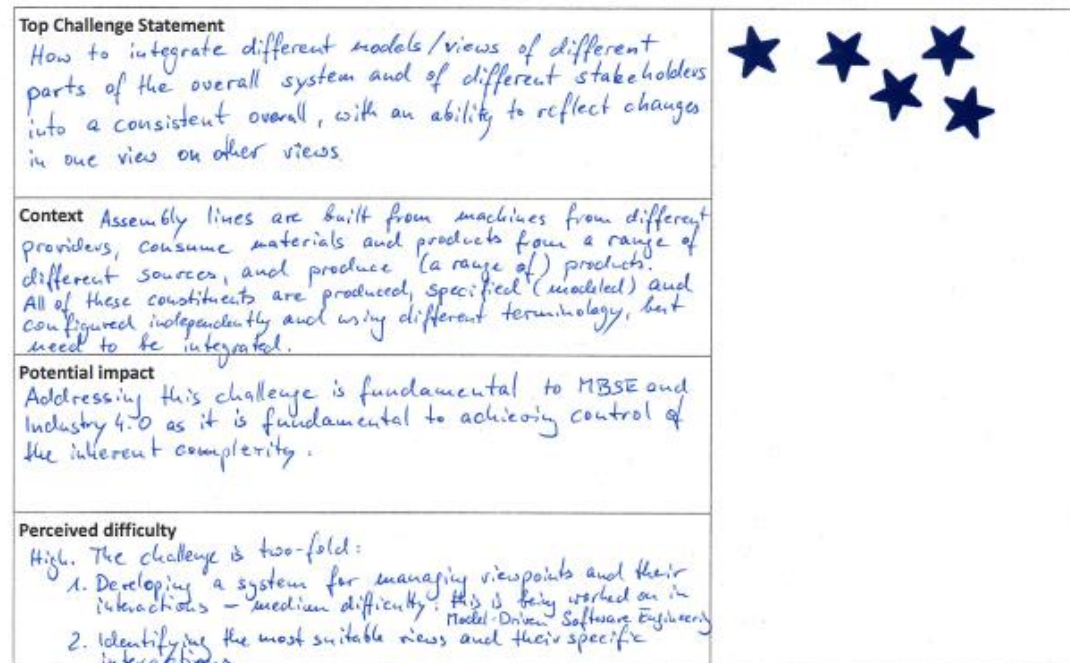 Top Challenge Statement
How to integrate different models/views of different
parts of the overall system and of different stakeholders
into a consistent overall, with an ability to reflect changes
in one view on other views.
Context Assembly lines are built from machines from different
providers, consume materials and products from a range of
different sources, and produce (a range of) products.
All of these constituents are produced, specified (modeled) and
configured independently and using different terminology, but
need to be integrated.
Potential impact
Addressing this challenge is fundamental to MBSE and
Industry 4.0 as it is fundamental to achieving control of
the inherent complexity.
Perceived difficulty
High. The challenge is two-fold:
1. Developing a system for managing viewpoints and their
interactions – medium difficulty. this is being worked on in
Model-Driven Software Engineering
2. Identifying the most suitable views and their specific
interactions